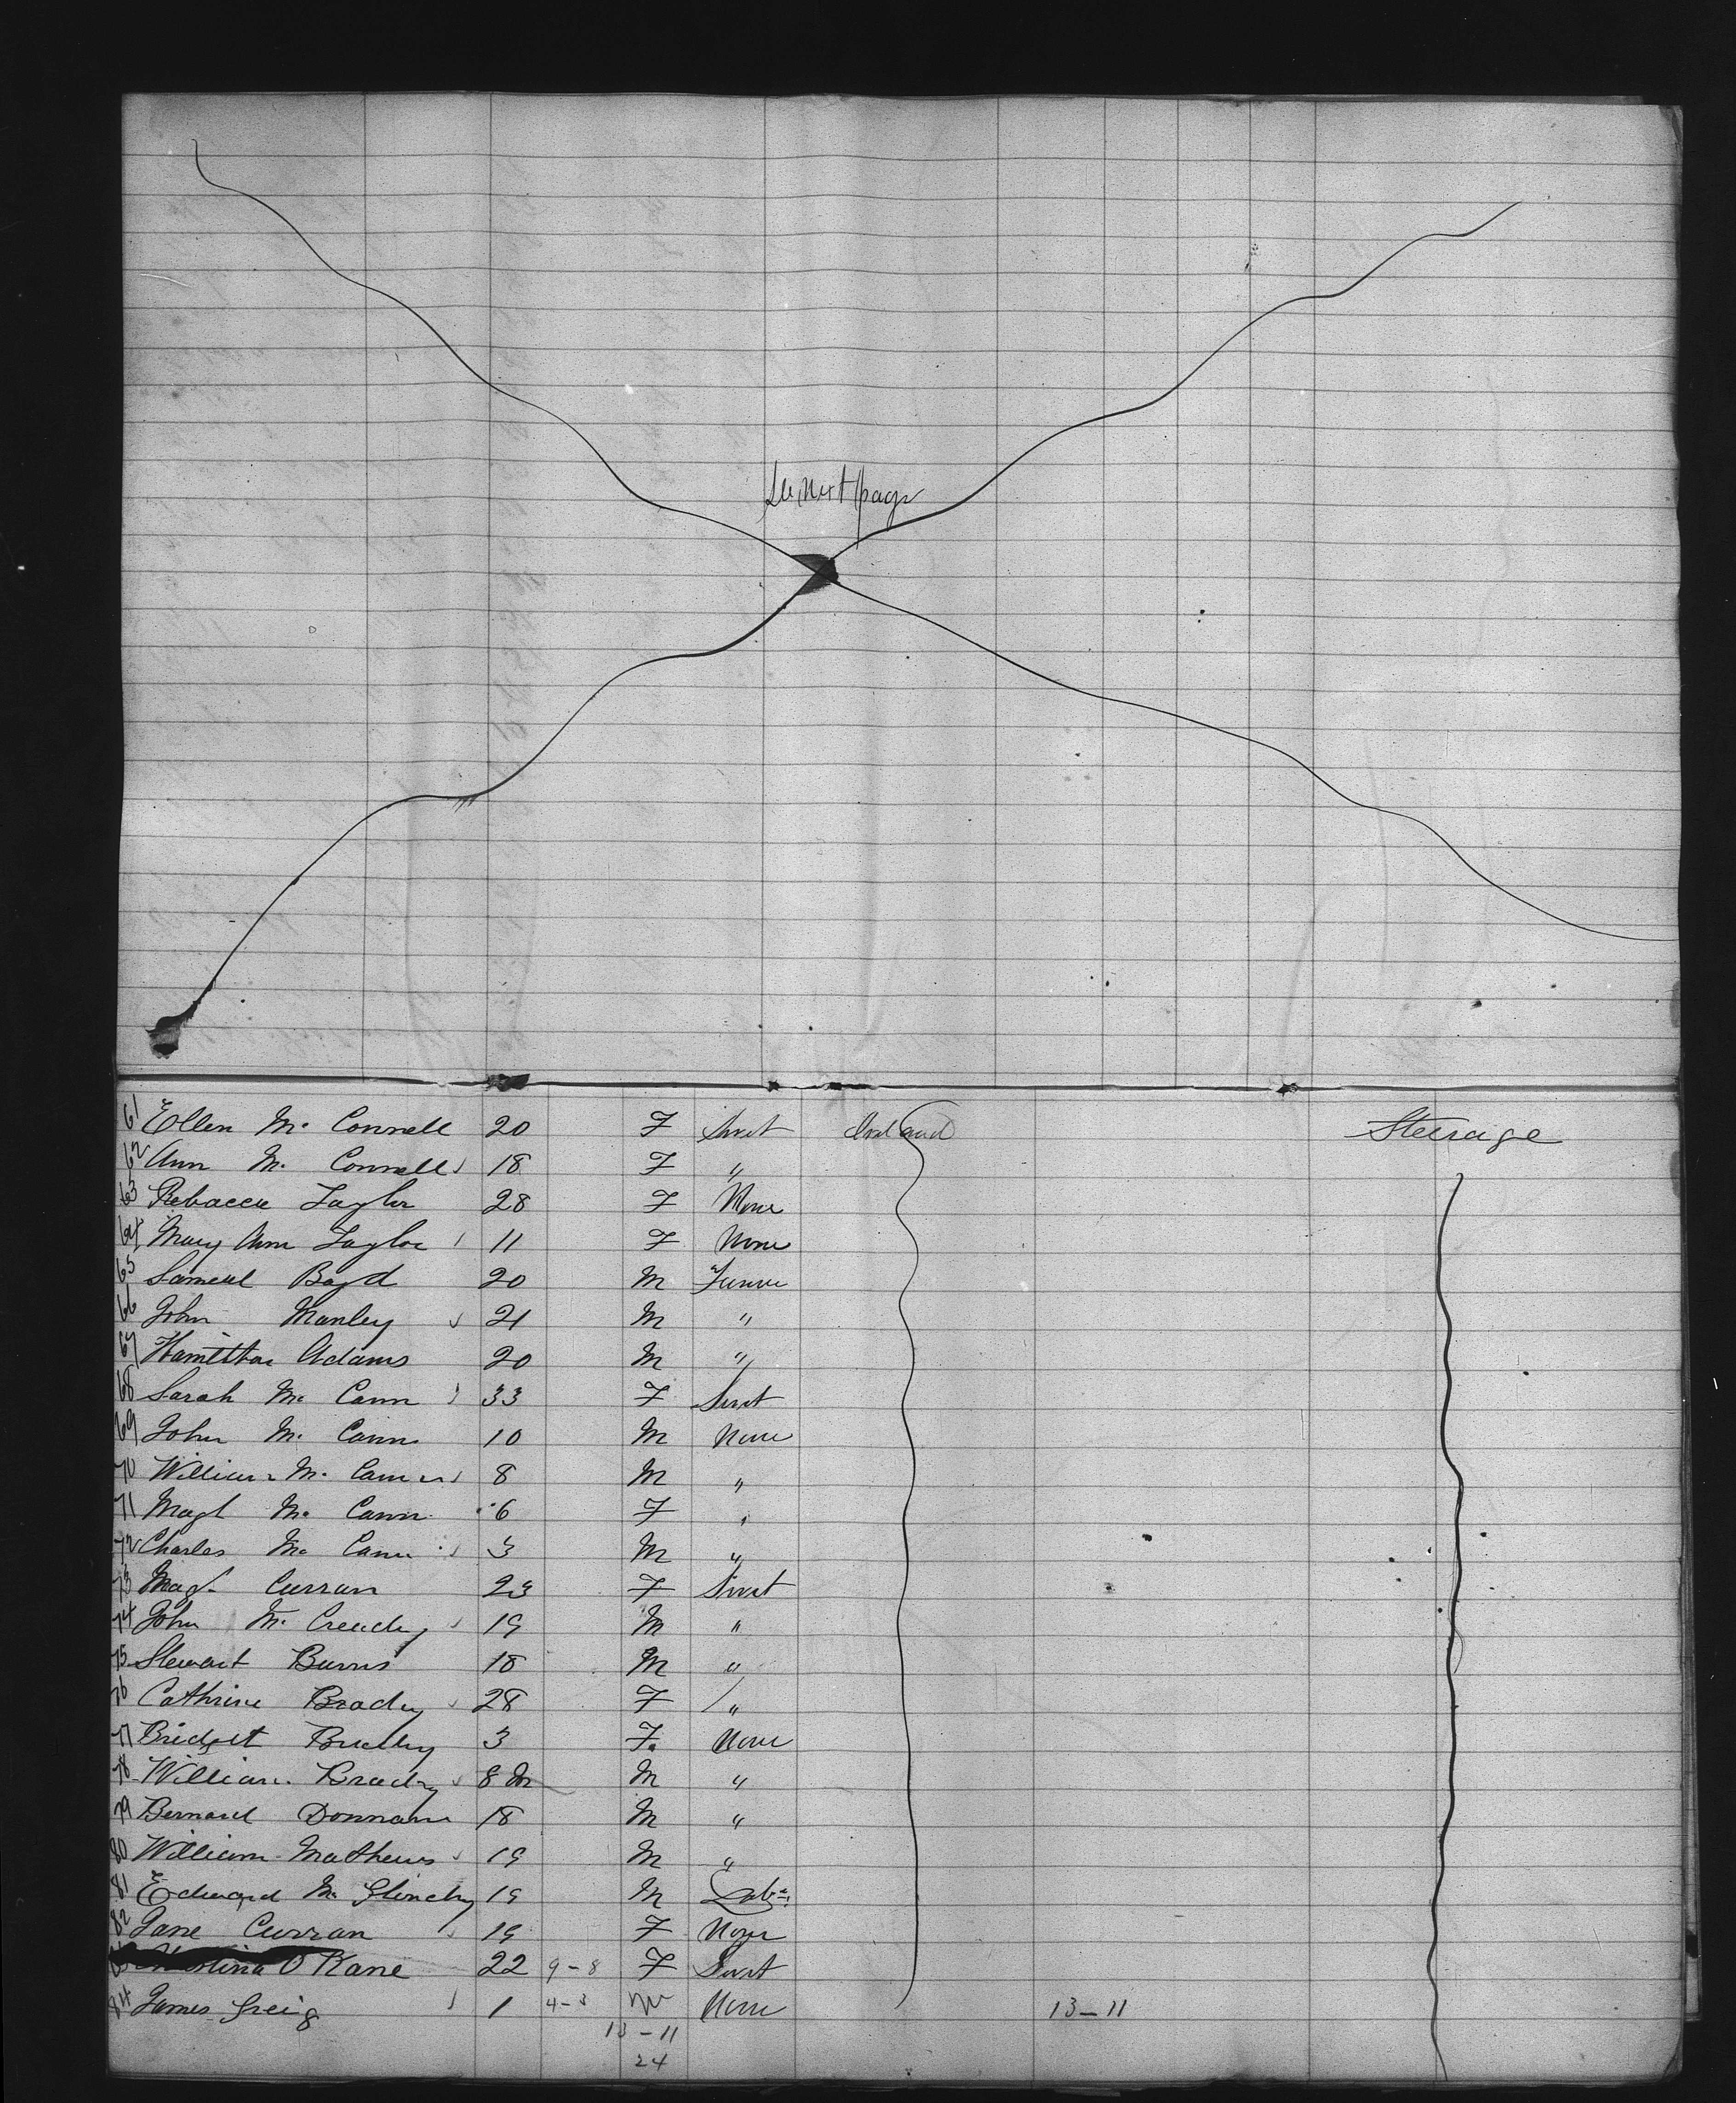 See next page
61 Ellen Mc Connell 20 F Servt Ireland Steerage
62 Ann Mc Connell 18 F "
63 Rebacca Taylor 28 F None
64 Mary Ann Taylor 11 F None
65 Sameul Boyd 20 M
66 John Manley 21 M "
67 Hamilton Adams 20 M "
68 Sarah Mc Cann 33 F Servt
69 John Mc Cann 10 M None
70 William Mc Cann 8 M "
71 Magt Mc Cann 6 F "
72 Charles Mc Cann 3 M "
73 Magt Curran 23 F Servt
74 John Mc Cready 19 M "
75 Stewart Burns 18 M "
76 Cathrine Brady 28 F "
77 Bridget Brady 3 F. None
78 William Brady 8 M M "
79 Bernard 18 M "
80 William Mathews 19 M "
81 Edward Mc Glinchy 19 M Labr
82 Jane Curran 19 F None
O Kane 22 9-8 F Servt
84 James Greig 1 4-3 M None 13-11
13-11
24